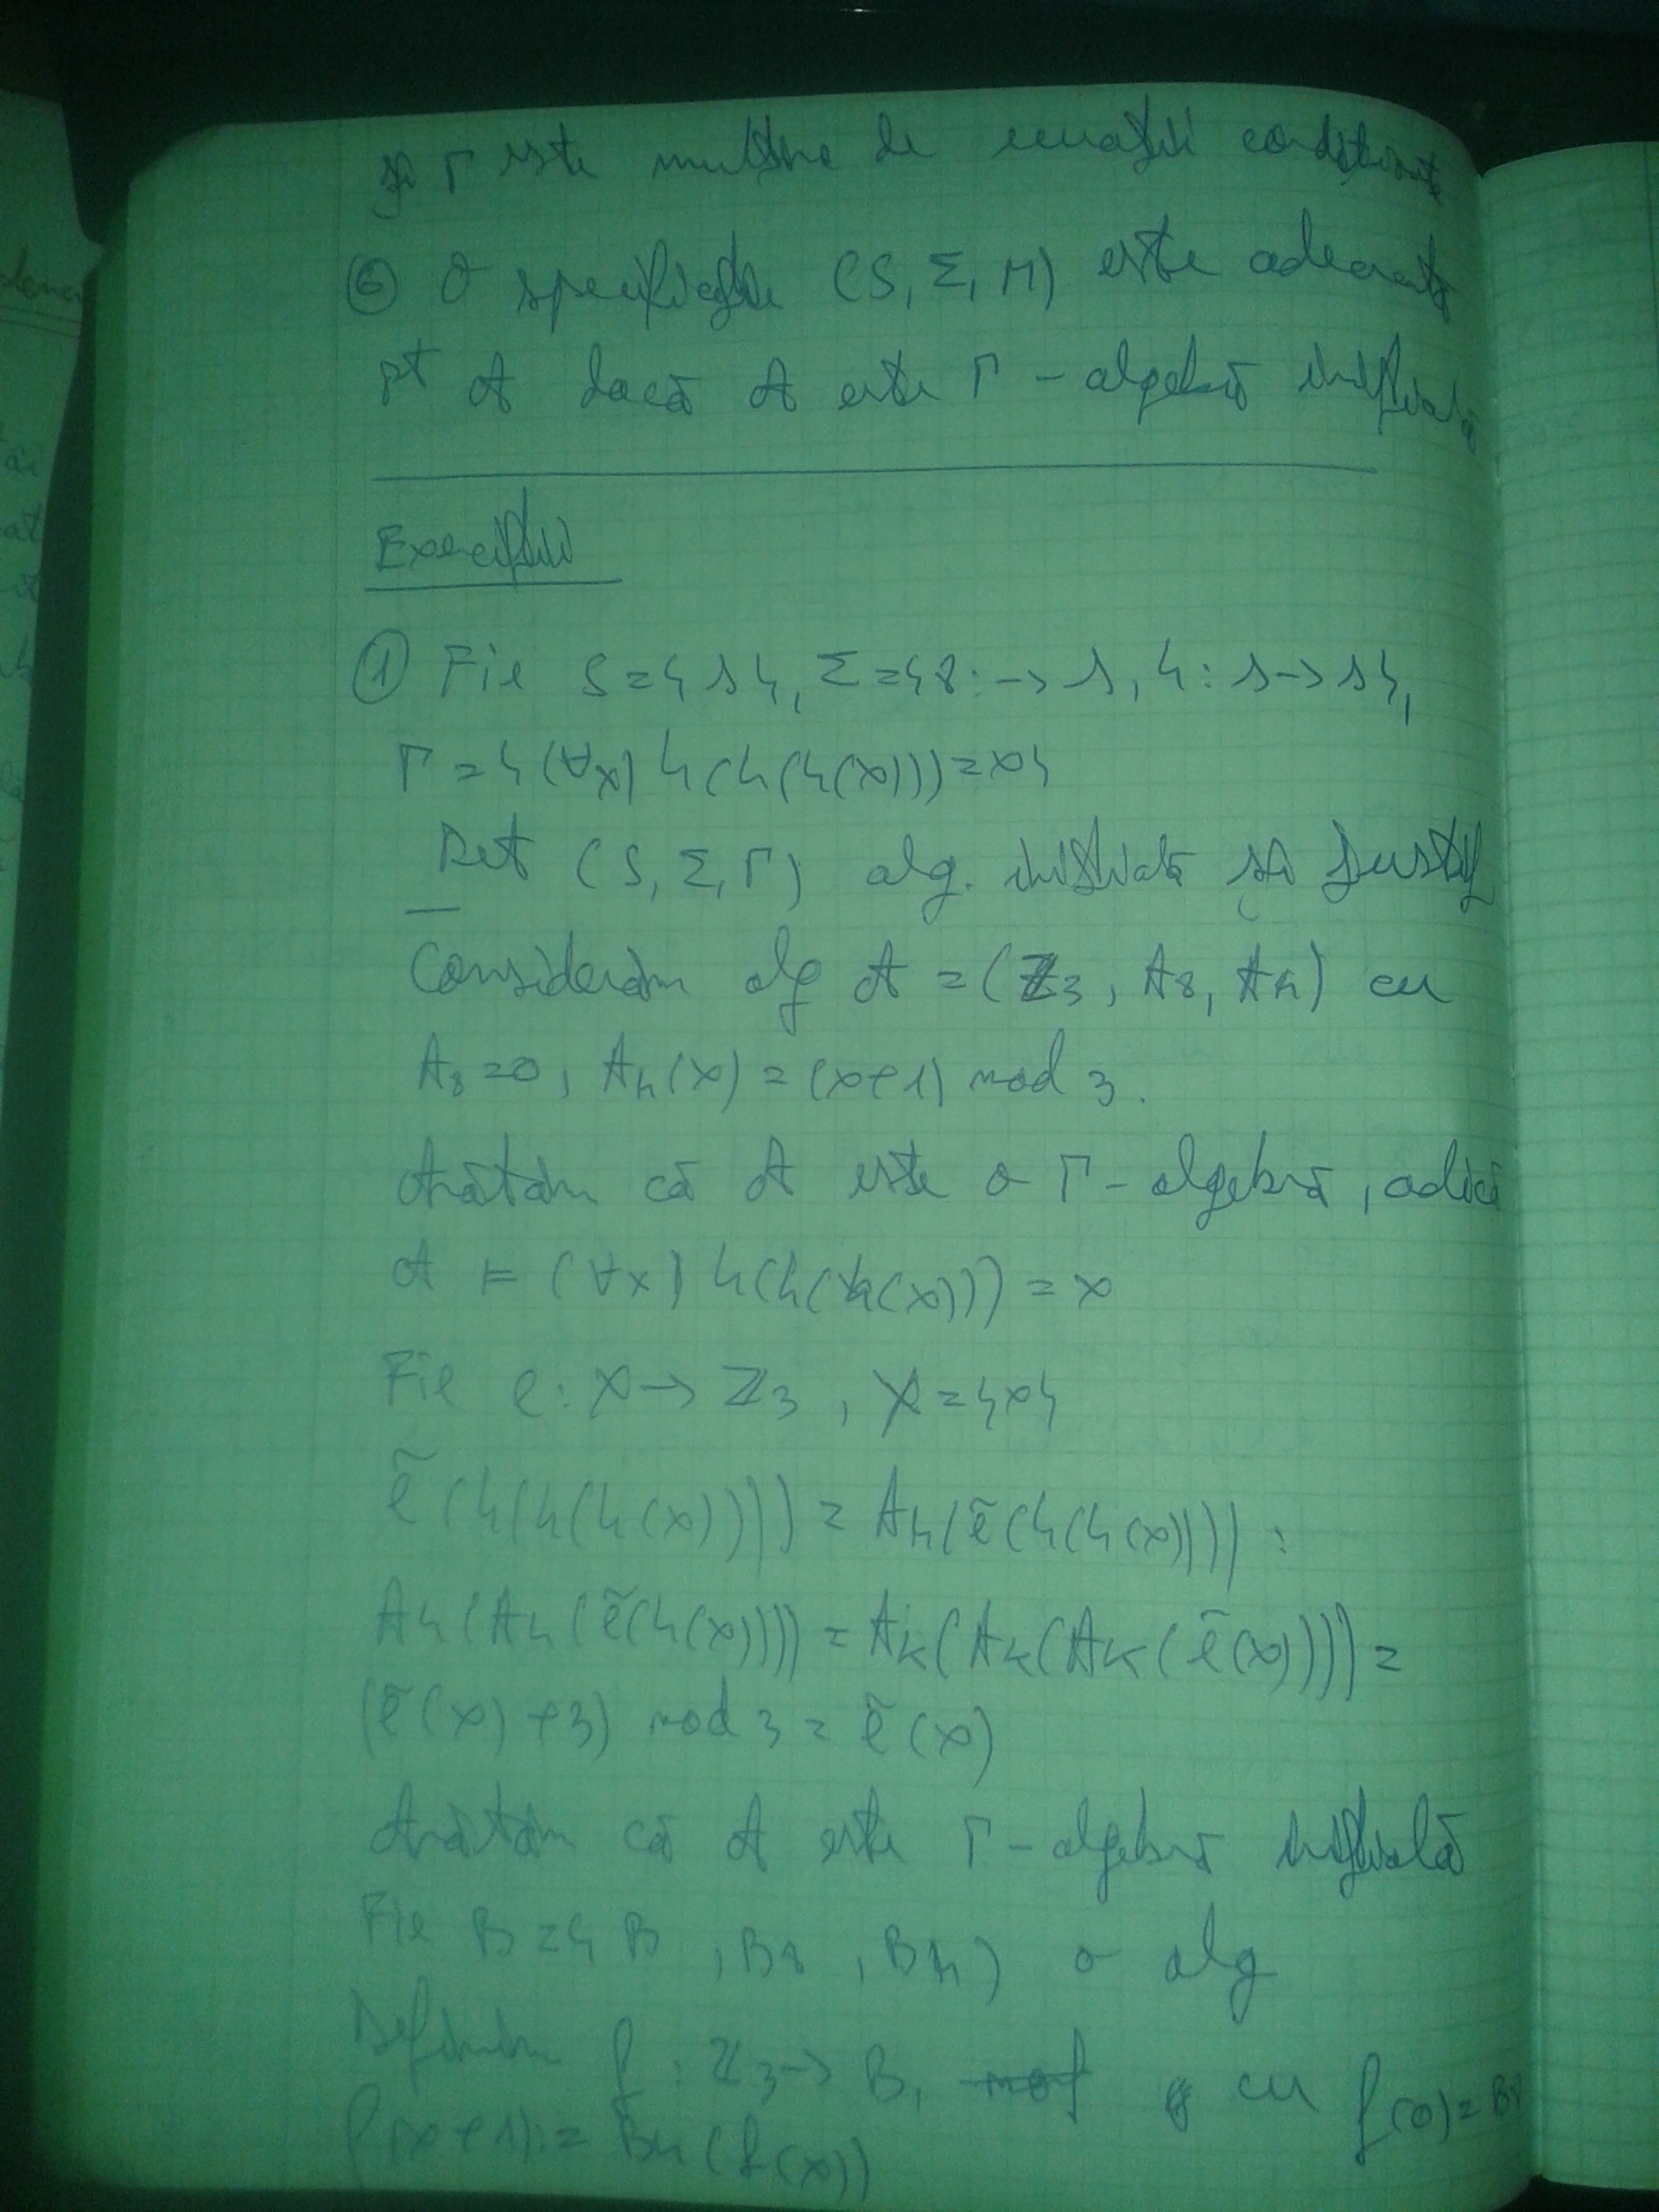 și Γ este mulțime de ecuații condiționate
⑥ O specificație (S, Σ, Γ) este adecvată
pt A dacă A este Γ - algebră inițială
Exerciții
① Fie S={s}, Σ={γ: -> s, h: s -> s},
Γ = {(∀x) h(h(h(x))) = x}
Det (S, Σ, Γ) alg. inițială și justif
Considerăm alg A = (ℤ3, Aγ, Ah) cu
Aγ = 0, Ah(x) = (x+1) mod 3.
Arătăm că A este o Γ - algebră, adică
A ⊨ (∀x) h(h(h(x))) = x
Fie e: X -> ℤ3, X = {x}
ẽ(h(h(h(x)))) = Ah(ẽ(h(h(x)))) =
Ah(Ah(ẽ(h(x)))) = Ah(Ah(Ah(ẽ(x)))) =
(ẽ(x) + 3) mod 3 = ẽ(x)
Arătăm că A este Γ - algebră inițială
Fie B = {B, Bγ, Bh) o alg
Definim f: ℤ3 -> B, cu f(0) = Bγ
f(x+1) := Bh(f(x))